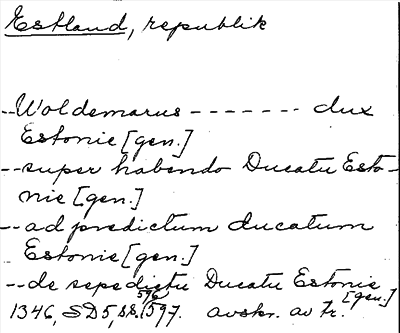 Estland, republik
--Woldemarus ------- dux
Estonie [gen.]
--super habendo Ducatu Esto-
nie [gen.]
--ad predictum ducatum
Estonie [gen.]
--de sepedictu Ducatu Estonie [gen.]
1346, SD5, s. 596, 597. avskr. av tr.